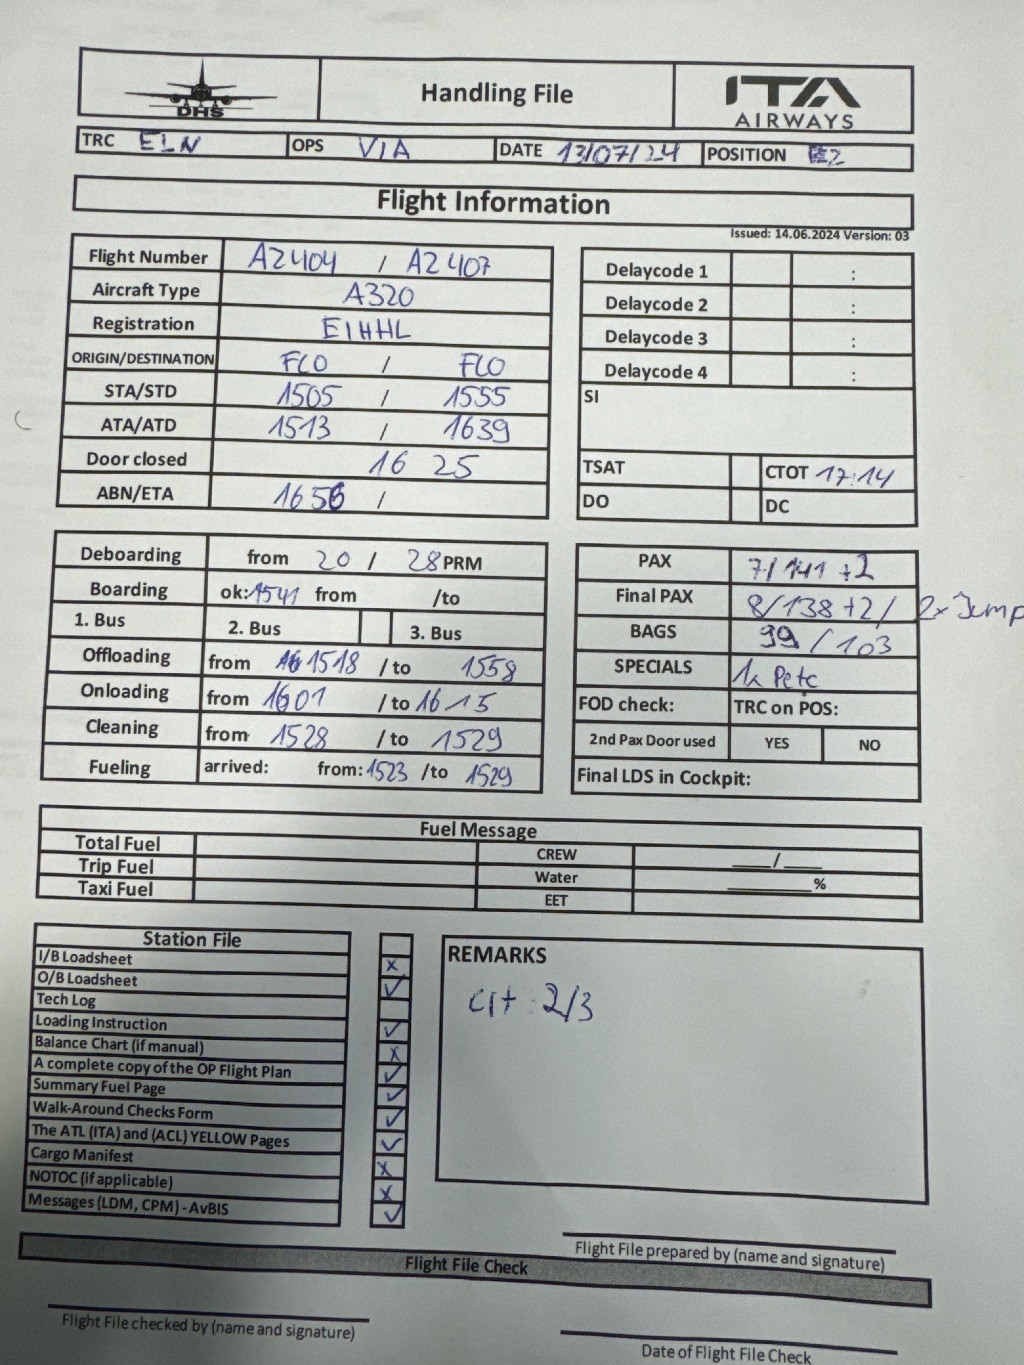 DHS
Handling File
ITA
AIRWAYS
TRC ELN OPS VIA DATE 13/07/24 POSITION E2
Flight Information
Issued: 14.06.2024 Version: 03
Flight Number AZ404 / AZ407
Aircraft Type A320
Registration EIHHL
ORIGIN/DESTINATION FCO / FCO
STA/STD 1505 / 1555
ATA/ATD 1513 / 1639
Door closed 16 25
ABN/ETA 1656 /
Delaycode 1 :
Delaycode 2 :
Delaycode 3 :
Delaycode 4 :
SI
TSAT CTOT 17:14
DO DC
Deboarding from 20 / 28 PRM
Boarding ok: 1541 from /to
1. Bus 2. Bus 3. Bus
Offloading from 1518 /to 1558
Onloading from 1601 /to 1615
Cleaning from 1528 /to 1529
Fueling arrived: from: 1523 /to 1529
PAX 7/141 +2
Final PAX 8/138 +2/ 2x Jump
BAGS 99 / 103
SPECIALS 1x Petc
FOD check: TRC on POS:
2nd Pax Door used YES NO
Final LDS in Cockpit:
Fuel Message
Total Fuel CREW ___/___
Trip Fuel Water ______%
Taxi Fuel EET
Station File
I/B Loadsheet x
O/B Loadsheet ✓
Tech Log
Loading Instruction ✓
Balance Chart (if manual) x
A complete copy of the OP Flight Plan ✓
Summary Fuel Page ✓
Walk-Around Checks Form ✓
The ATL (ITA) and (ACL) YELLOW Pages ✓
Cargo Manifest x
NOTOC (if applicable) x
Messages (LDM, CPM) - AvBIS ✓
REMARKS
Crt : 2/3
Flight File prepared by (name and signature)
Flight File Check
Flight File checked by (name and signature)
Date of Flight File Check